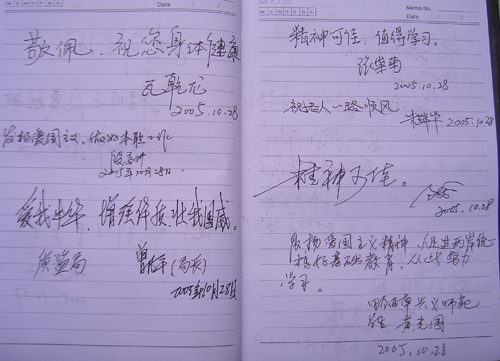 Date
敬佩．祝您身体健康
瓦乾龙
2005.10.28
发扬爱国主义，做好本职工作
2005年10月28日
爱我中华，增强体质，壮我国威。
质监局 (局长)
2005年10月28日
Memo No.
Date
精神可佳，值得学习。
张荣菊
2005.10.28
祝老人一路顺风
2005.10.28
精神可佳。
2005.10.28
发扬爱国主义精神，促进两岸统一
搞好基础教育，从此努力
学习。
黄光国
2005.10.28